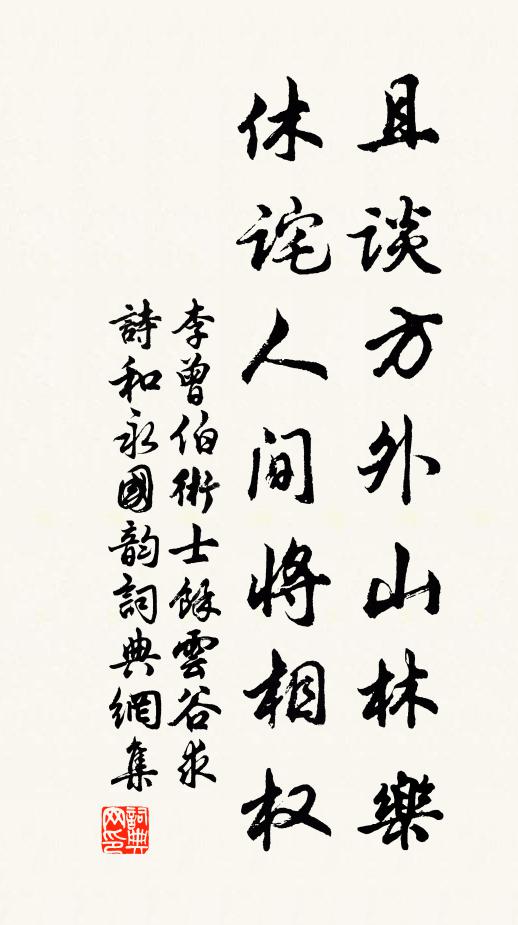 且谈方外山林樂
休诧人间將相权
李曾伯術士餘雲谷求
詩和永國韵詞典網集
詞典网印